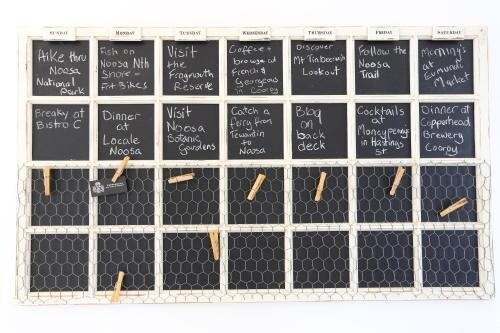 SUNDAY
MONDAY
TUESDAY
WEDNESDAY
THURSDAY
FRIDAY
SATURDAY
Hike thru
Noosa
National
Park
Fish on
Noosa Nth
Shore -
Fat Bikes
Visit
the
Frogmouth
Reserve
Coffee +
browse at
French &
Gorgeous
in Cooroy
Discover
Mt Tinbeerwah
Lookout
Follow the
Noosa
Trail
Morning's
at
Eumundi
Market
Breaky at
Bistro C
Dinner
at
Locale
Noosa
Visit
Noosa
Botanic
Gardens
Catch a
ferry from
Tewantin
to
Noosa
BBQ
on
back
deck
Cocktails
at
Moneypenny's
in Hastings
st
Dinner at
Copperhead
Brewery
Cooroy